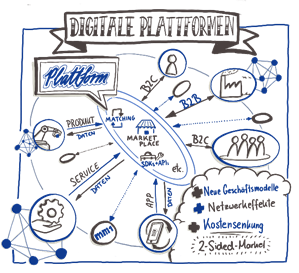 DIGITALE PLATTFORMEN
Plattform
B2C
B2B
PRODUKT
DATEN
MATCHING
MARKET
PLACE
SDKs+APIs
etc
B2C
SERVICE
DATEN
APP
DATEN
mmi
+ Neue Geschäftsmodelle
+ Netzwerkeffekte
+ Kostensenkung
2-Sided-Market